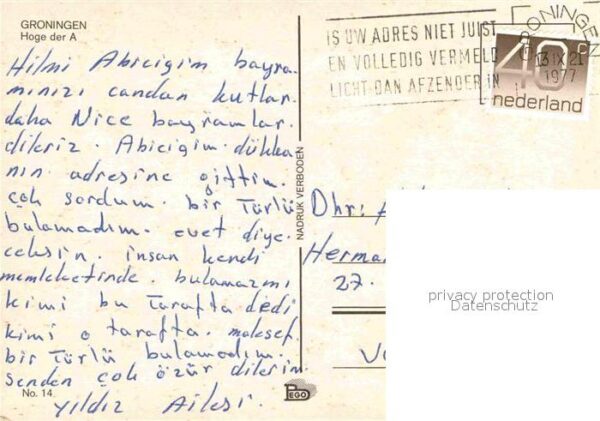 GRONINGEN
Hoge der A
Hilmi Abicigim bayra.
minizi candan kutlar.
daha Nice bayramlar.
dileriz. Abicigim. dükka
nın adresine gittim.
çok sordum. bir Türlü
bulamadım. evet diye.
ceksin. insan kendi
memleketinde. bulamazmı
kimi bu Tarafta dedi
kimi o tarafta. malesef.
bir Türlü bulamadım.
senden çok özür dilerim
yıldız Ailesi.
No. 14
NADRUK VERBODEN
PEGO
IS UW ADRES NIET JUIST
EN VOLLEDIG VERMELD
LICHT DAN AFZENDER IN
GRONINGEN
13 IX 21
1977
40c
nederland
Dhr:
Herma
27.
privacy protection
Datenschutz